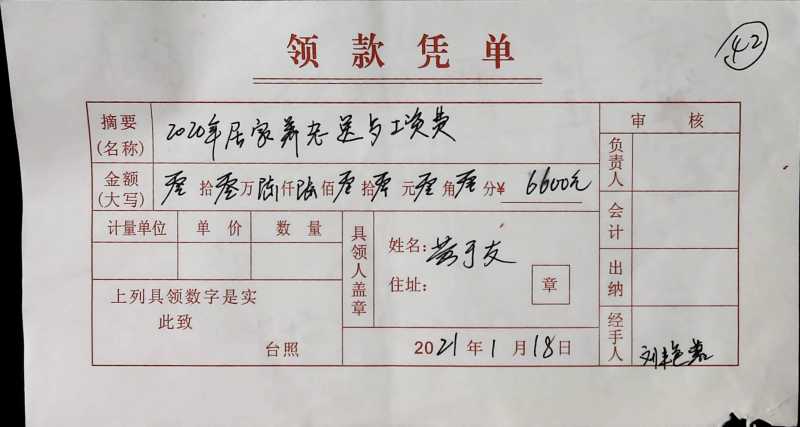 领款凭单
42
摘要(名称) 2020年居家养老送与工资费
审核
金额(大写) 零拾零万陆仟陆佰零拾零元零角零分¥ 6600元
负责人
计量单位 单价 数量
会计
具领人盖章
姓名: 友
住址: 章
上列具领数字是实
此致
台照
出纳
2021年1月18日
经手人 刘